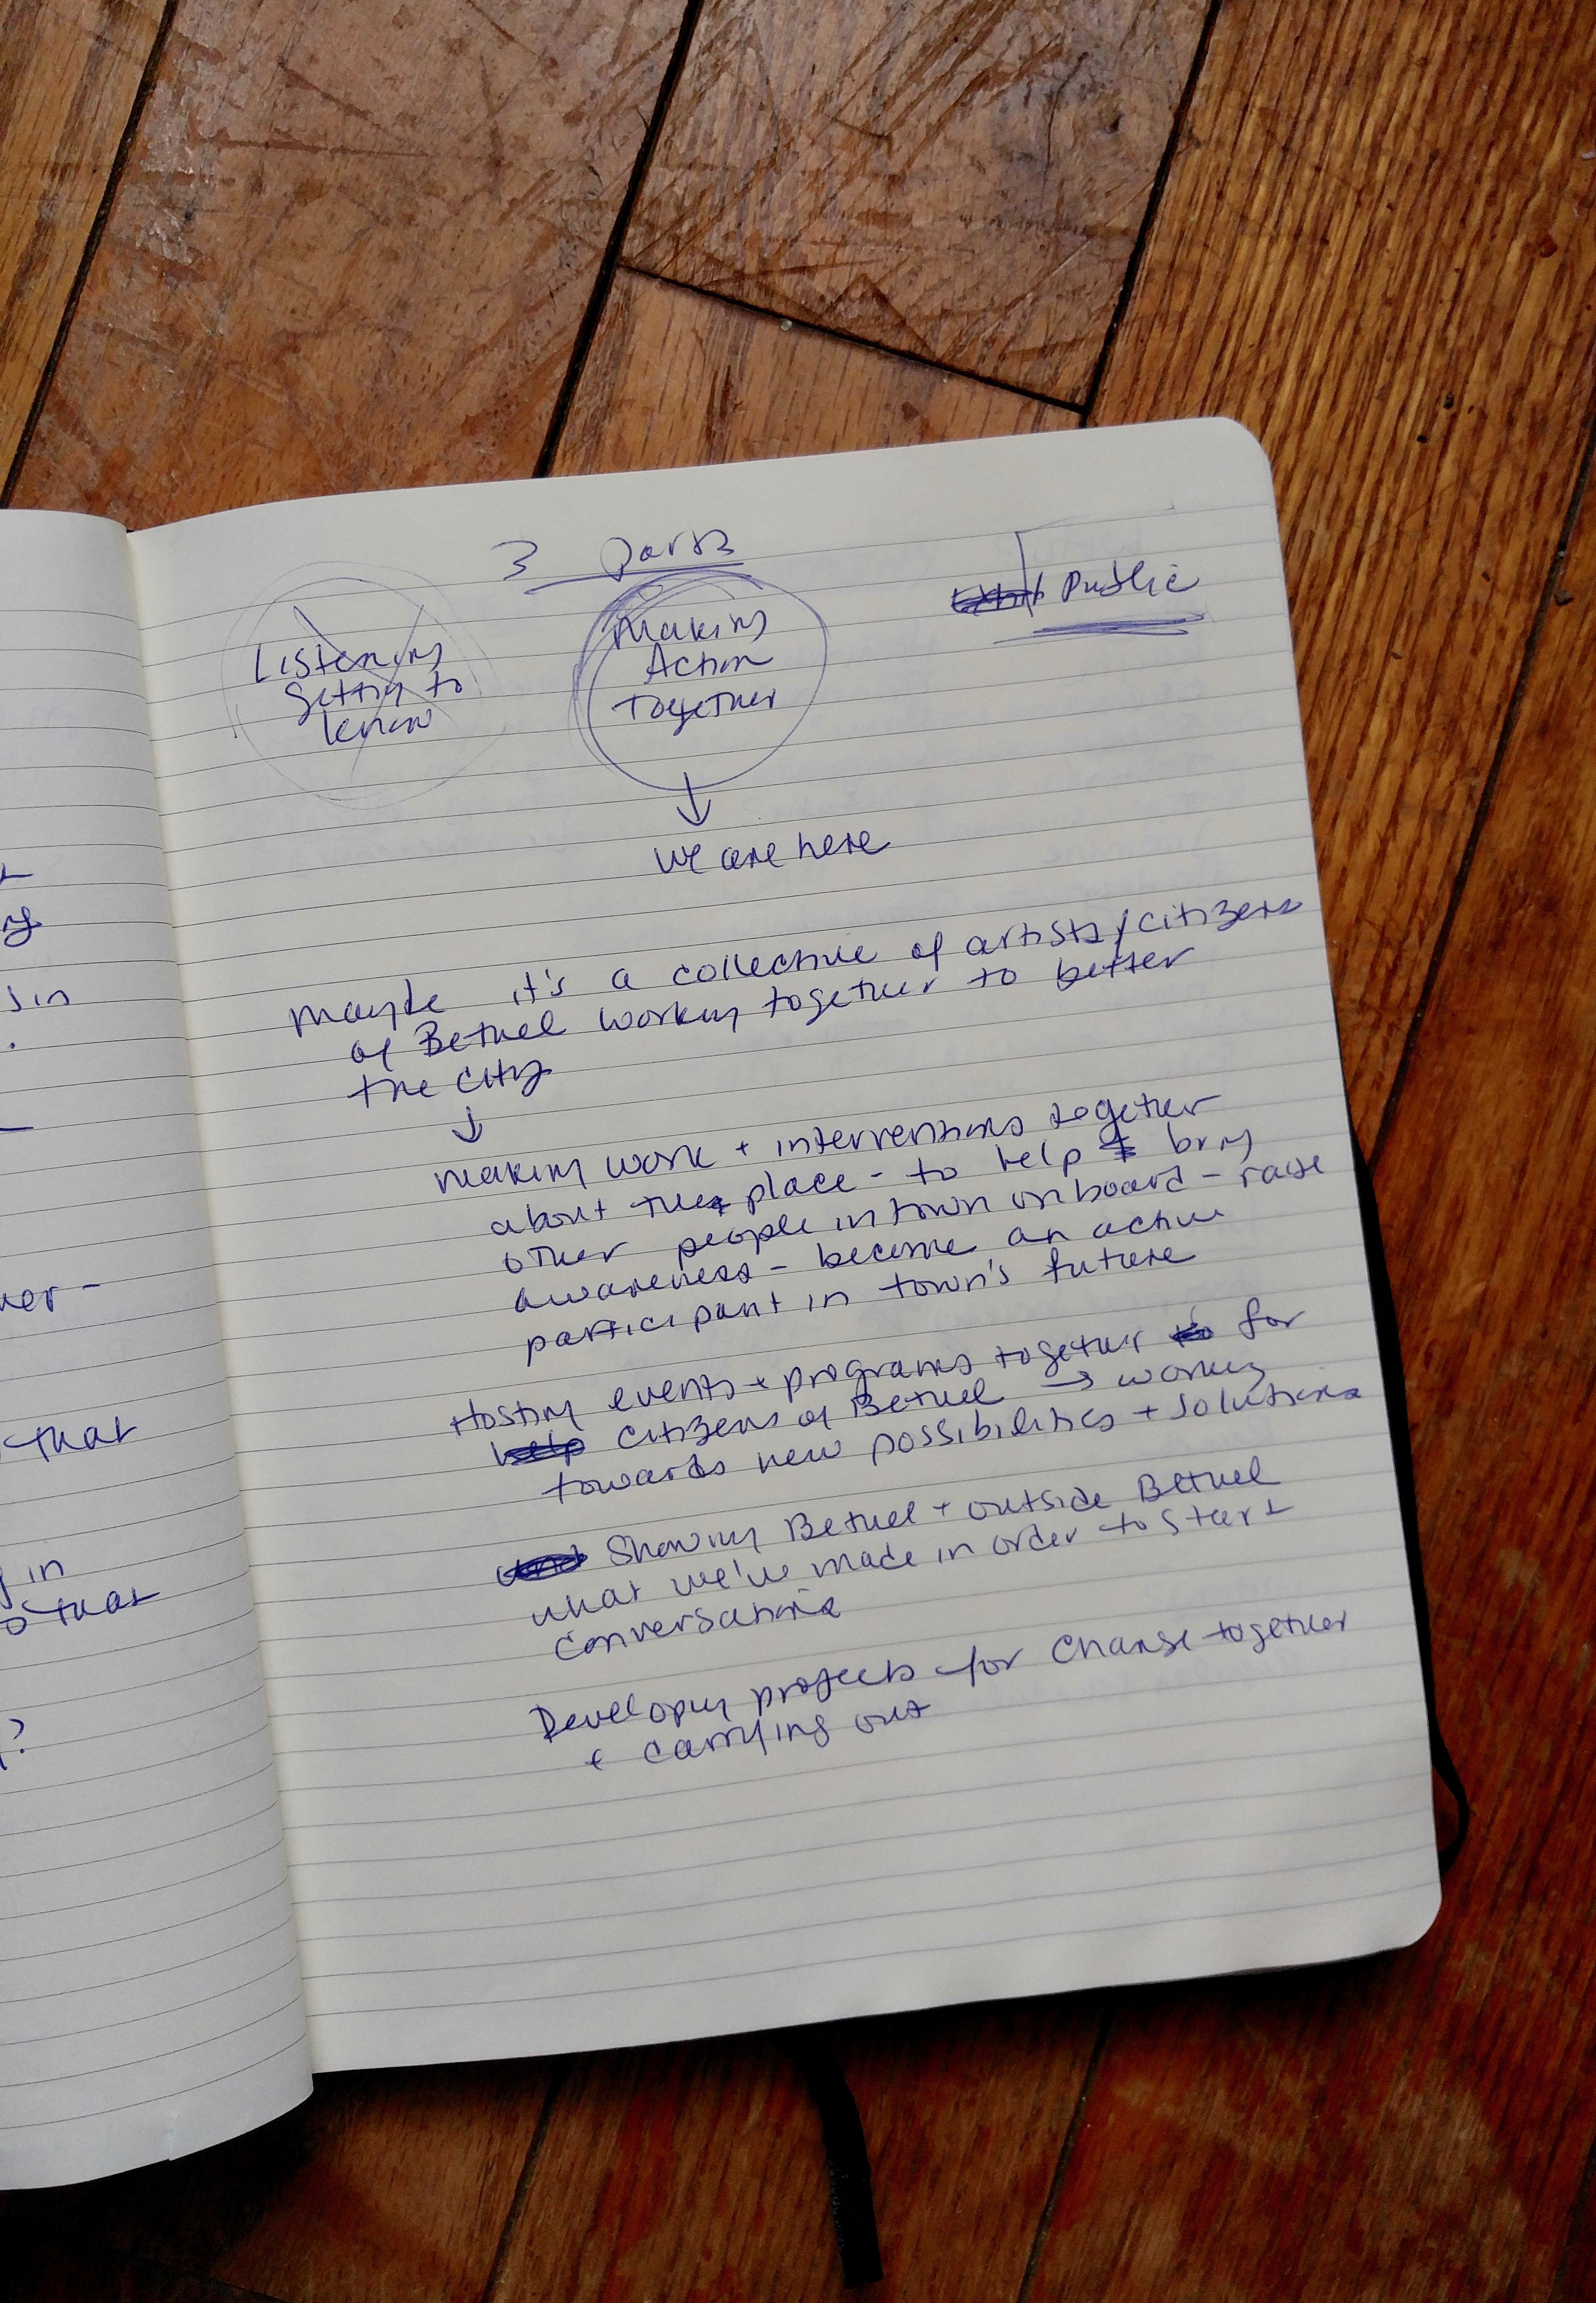 3 parts
Listening
getting to
know
Making
Action
Together
Public
we are here
Maybe it's a collective of artists/citizens
of Bethel working together to better
the city
making work + interventions together
about the place - to help bring
other people in town onboard - raise
awareness - become an active
participant in town's future
Hosting events + programs together for
citizens of Bethel → working
towards new possibilities + solutions
Showing Bethel + outside Bethel
what we've made in order to start
conversations
Developing projects for change together
+ carrying out
s in
.
er -
that
in
that
?